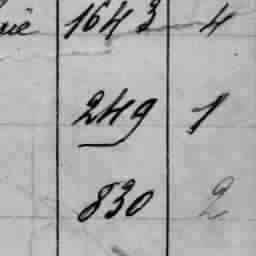 1643 4
249 1
830 2